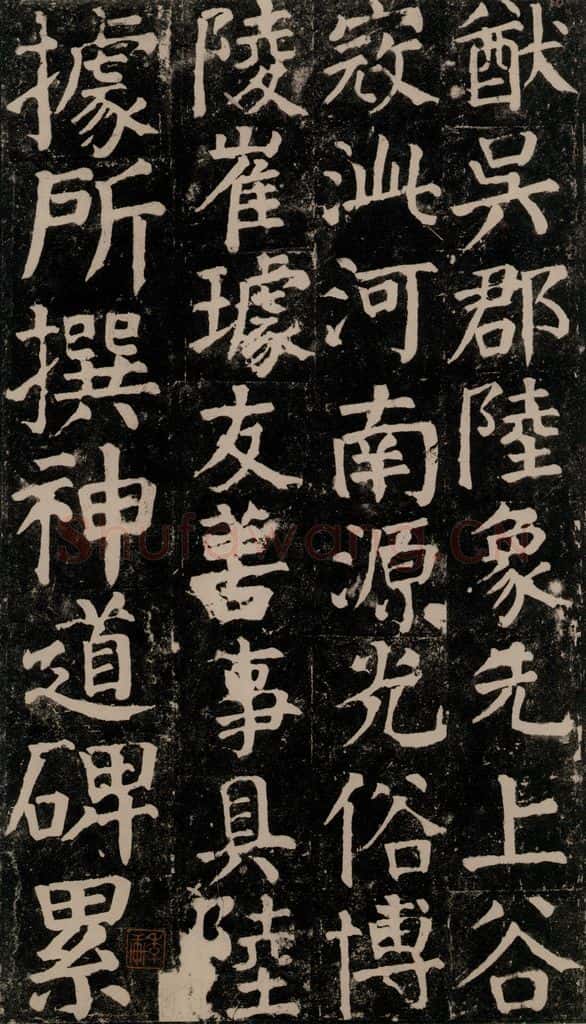 猷吳郡陸象先上谷
寇泚河南源光俗博
陵崔璩友善事具陸
據所撰神道碑累
Shufawang.CN